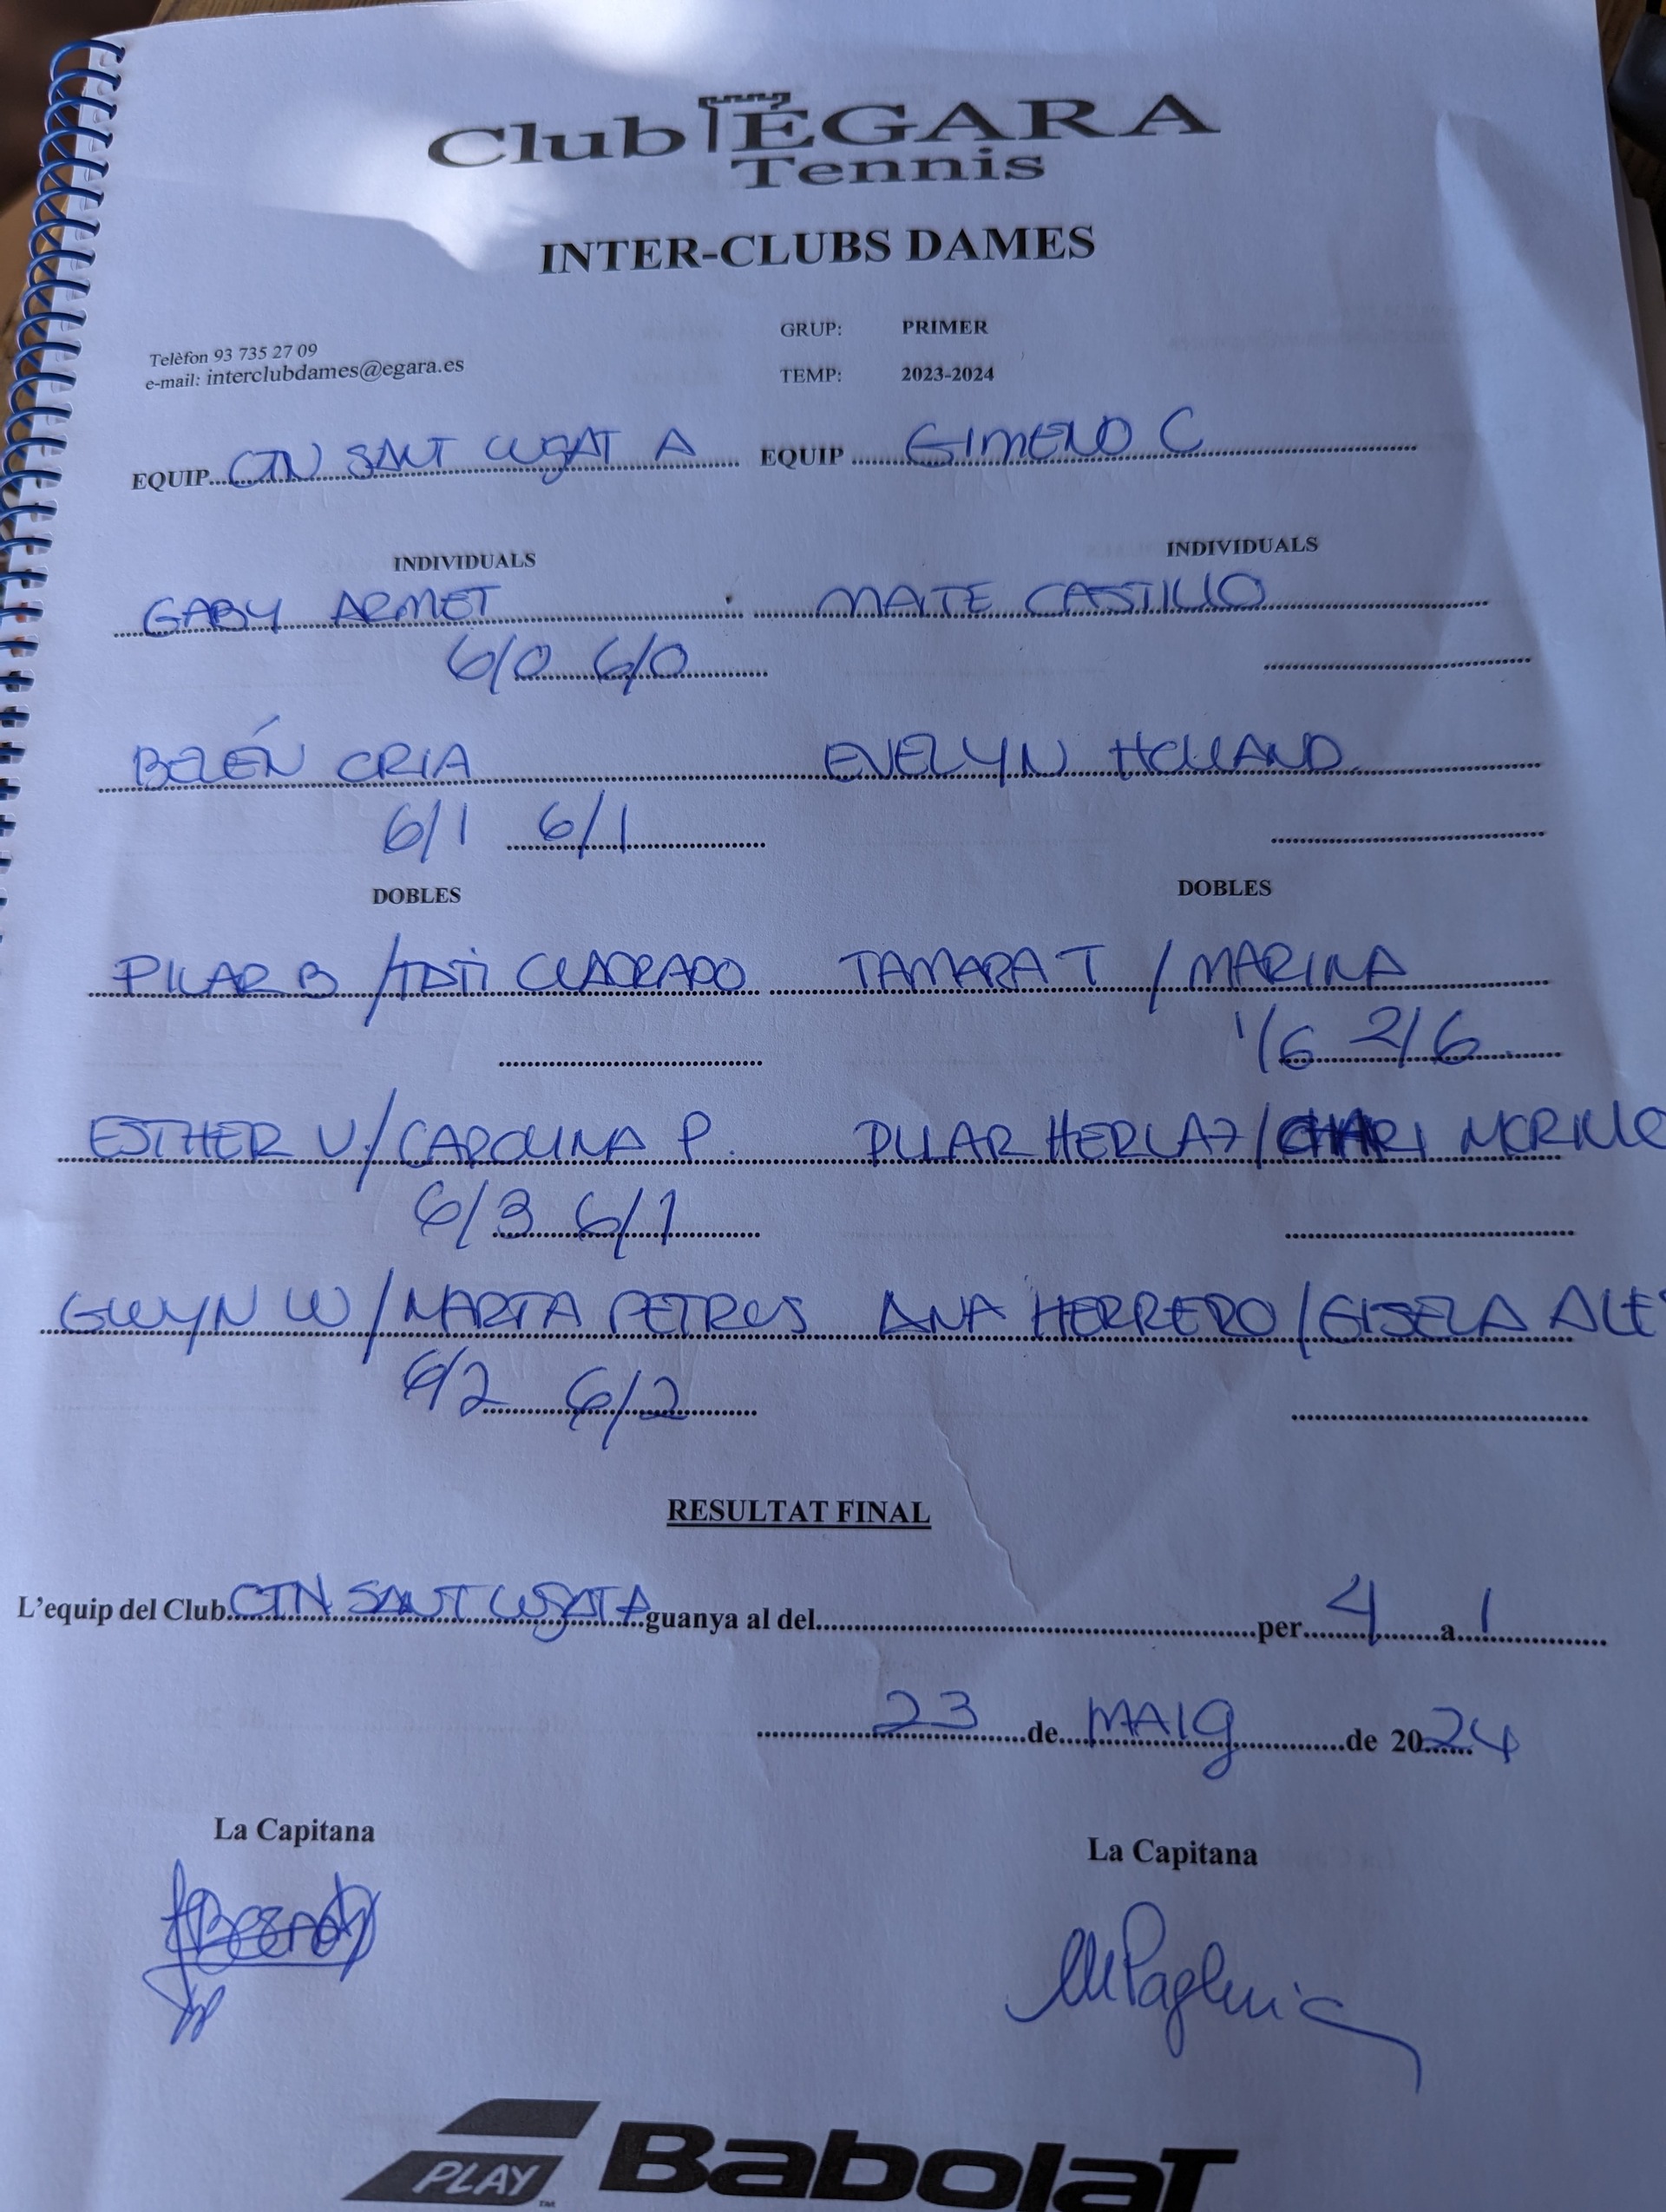 Club ÈGARA
Tennis
INTER-CLUBS DAMES
GRUP: PRIMER
Telèfon 93 735 27 09
e-mail: interclubdames@egara.es
TEMP: 2023-2024
EQUIP CTN SANT CUGAT A EQUIP GIMENO C
INDIVIDUALS INDIVIDUALS
GABY ARMET MAITE CASTILLO
6/0 6/0
BELÉN CRIA EVELYN HOLLAND
6/1 6/1
DOBLES DOBLES
PILAR B / CUADRADO TAMARA T / MARINA
1/6 2/6
ESTHER V / CAROLINA P. PILAR / CHARI MORILLO
6/3 6/1
GWYN W / MARTA PETRUS ANA HERRERO / GISELA
6/2 6/2
RESULTAT FINAL
L'equip del Club CTN SANT CUGAT A guanya al del per 4 a 1
23 de MAIG de 2024
La Capitana La Capitana
PLAY BabolaT